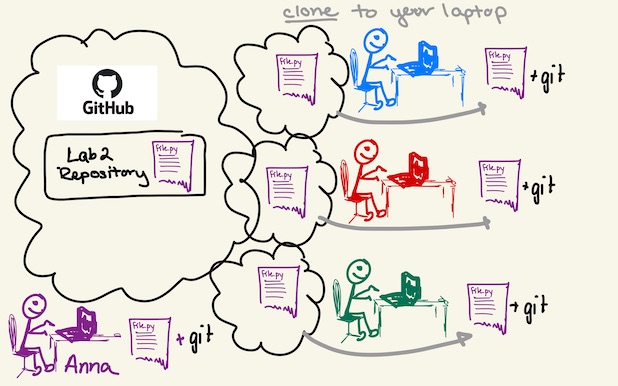 clone to your laptop
GitHub
Lab 2
Repository
File.py
File.py
+ git
File.py
File.py
+ git
File.py
File.py
+ git
File.py
Anna
File.py
+ git